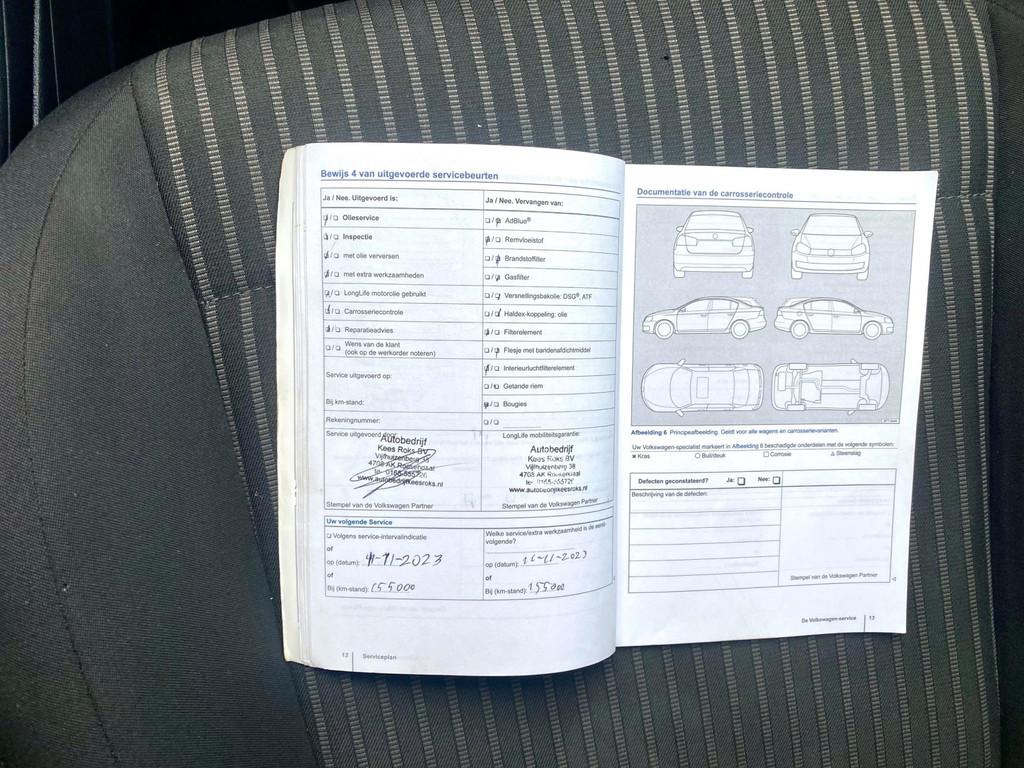 Bewijs 4 van uitgevoerde servicebeurten
Ja / Nee. Uitgevoerd is:
Olieservice
Inspectie
met olie verversen
met extra werkzaamheden
LongLife motorolie gebruikt
Carrosseriecontrole
Reparatieadvies
Wens van de klant
(ook op de werkorder noteren)
Service uitgevoerd op:
Bij km-stand:
Rekeningnummer:
Service uitgevoerd door:
Autobedrijf
Kees Roks BV
Vijfhuizenberg 38
4708 AK Roosendaal
tel. 0165-555726
www.autobedrijfkeesroks.nl
Stempel van de Volkswagen Partner
Ja / Nee. Vervangen van:
AdBlue®
Remvloeistof
Brandstoffilter
Gasfilter
Versnellingsbakolie: DSG®, ATF
Haldex-koppeling: olie
Filterelement
Flesje met bandenafdichtmiddel
Interieurluchtfilterelement
Getande riem
Bougies
LongLife mobiliteitsgarantie:
Autobedrijf
Kees Roks BV
Vijfhuizenberg 38
4708 AK Roosendaal
tel. 0165-555726
www.autobedrijfkeesroks.nl
Stempel van de Volkswagen Partner
Uw volgende Service
Volgens service-intervalindicatie
of
op (datum): 11-11-2023
of
Bij (km-stand): 155000
Welke service/extra werkzaamheid is de eerst
volgende?
op (datum): 11-11-2023
of
Bij (km-stand): 155000
12 Serviceplan
Documentatie van de carrosseriecontrole
Afbeelding 6 Principeafbeelding. Geldt voor alle wagens en carrosserievarianten.
Uw Volkswagen-specialist markeert in Afbeelding 6 beschadigde onderdelen met de volgende symbolen:
× Kras O Buil/deuk □ Corrosie △ Steenslag
Defecten geconstateerd? Ja: □ Nee: □
Beschrijving van de defecten:
Stempel van de Volkswagen Partner
De Volkswagen-service 13